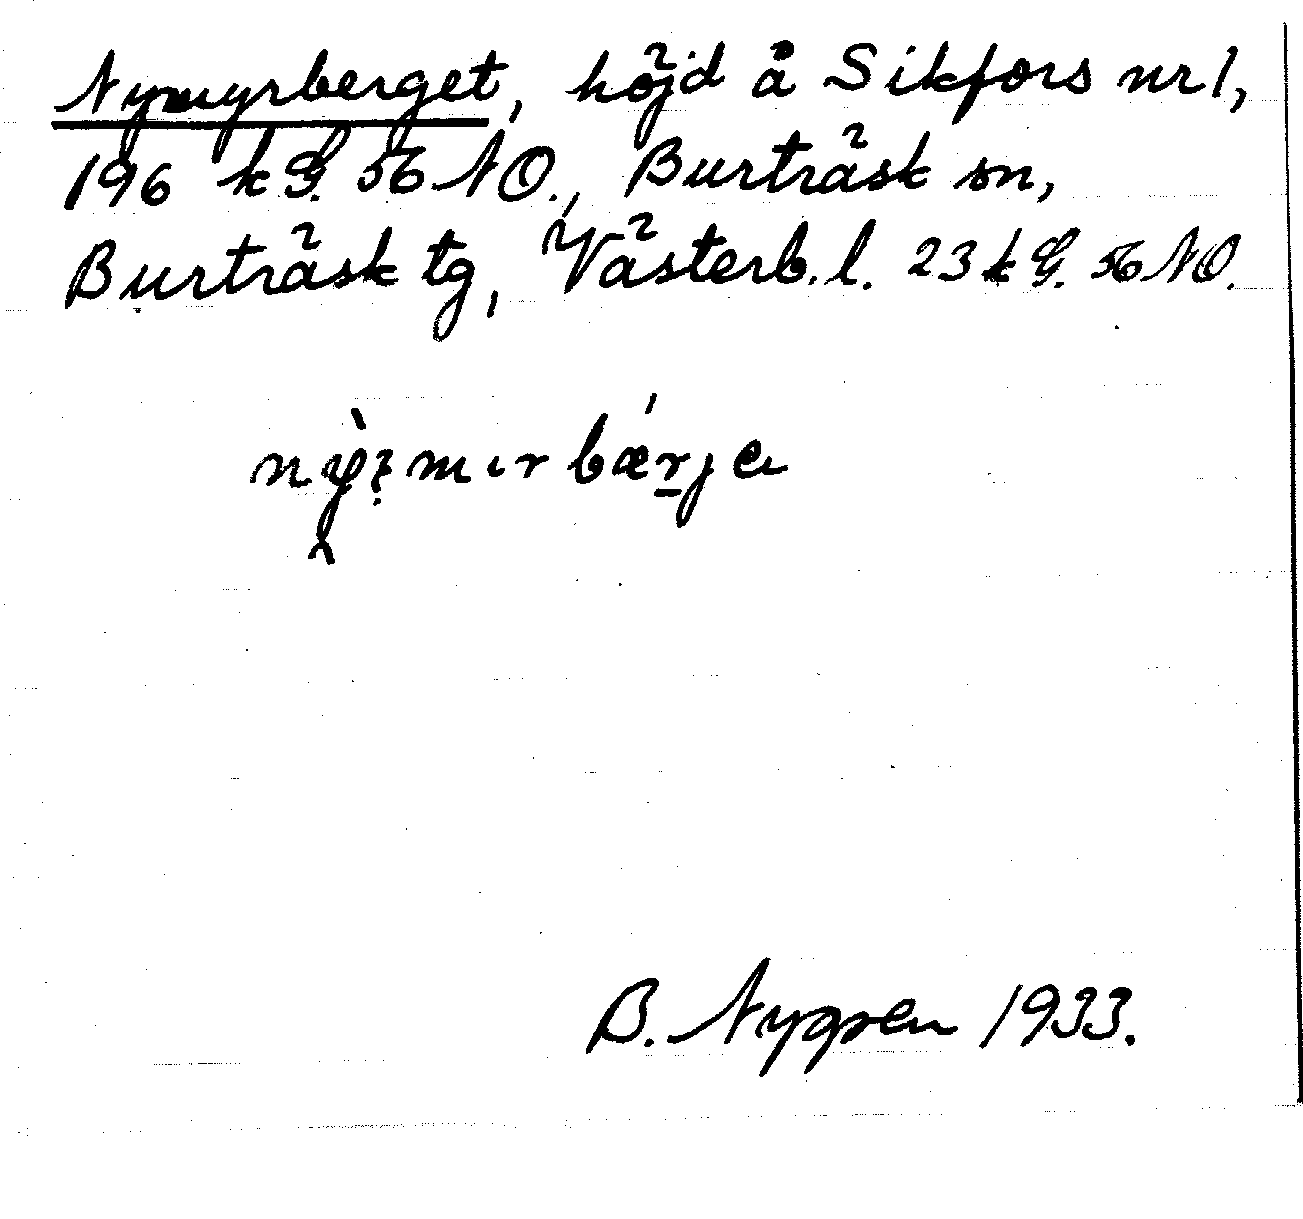 Nymyrberget, höjd å Sikfors nr 1,
196 k G. 56 NO., Burträsk sn,
Burträsk tg, Västerb. l. 23 k G. 56 NO.
B. Nygren 1933.